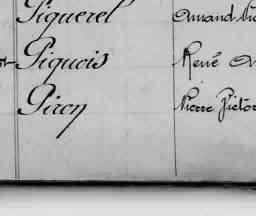 Piquerel Armand
Piquois René
Piron Pierre Victor